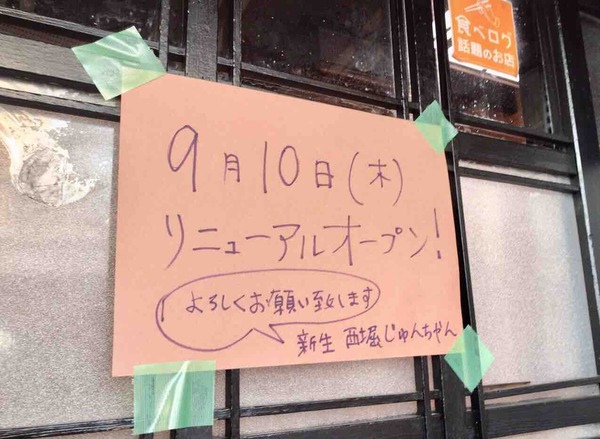 食べログ
話題のお店
9月10日(木)
リニューアルオープン!
よろしくお願い致します
新生 西堀じゅんちゃん